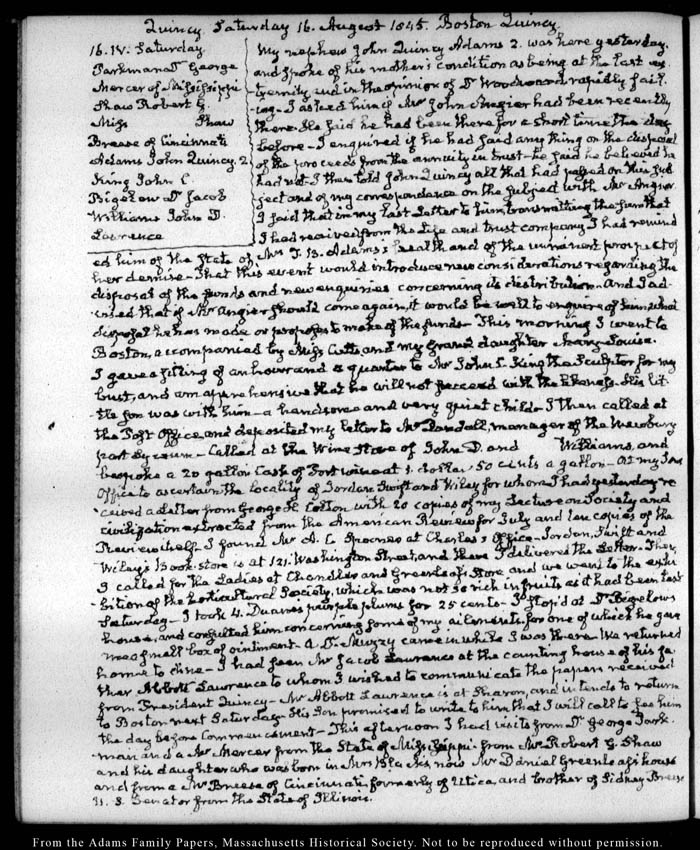 Quincy. Saturday 16. August 1845. Boston Quincy.
16. IV. Saturday
Parkman Dr George
Mercer of Mississippi
Shaw Robert G.
Miss Shaw
Breese of Cincinnati
Adams John Quincy. 2
King John C.
Bigelow Dr Jacob
Williams John D.
Lawrence
My nephew John Quincy Adams 2. was here yesterday,
and spoke of his mother's condition as being at the last ex-
tremity and in the opinion of Dr Woodward rapidly fail-
ing. I asked him if Mr John Angier had been recently
there. He said he had been there for a short time the day
before. I enquired if he had said any thing on the disposal
of the proceeds from the annuity in trust. he said he believed he
had not. I then told John Quincy all that had passed on this sub-
ject and of my correspondence on the subject with Mr Angier.
I said that in my last Letter to him, transmitting the sum that
I had received from the Life and trust company I had remind
ed him of the State of Mrs T. B. Adams's health and of the imminent prospect of
her demise. That this event would introduce new considerations regarding the
disposal of the funds and new enquiries concerning its distribution. And I ad-
vised that if Mr Angier should come again, it would be well to enquire of him, what
disposal he has made or proposes to make of the funds. This morning I went to
Boston, accompanied by Miss Cutts, and my Grand daughter Mary Louisa.
I gave a sitting of an hour and a quarter to Mr John C. King the Sculptor for my
bust, and am apprehensive that he will not succeed with the likeness. His lit-
tle son was with him. a handsome and very quiet child. I then called at
the Post Office, and deposited my letter to Mr Randall, manager of the Newbury
port Lyceum. Called at the Wine Store of John D. and Williams, and
bespoke a 20 gallon Cask of Port wine at 1. dollar 50 cents a gallon. At my Sons
Office to ascertain the locality of Jordan Swift and Wiley for whom I had yesterday re-
ceived a letter from George H. Colton with 20 copies of my Lecture on Society and
civilization extracted from the American Review for July and ten copies of the
Review itself. I found Mr A. C. Spooner at Charles's Office. Jordan, Swift and
Wiley's Book-store is at 121. Washington Street, and there I delivered the Letter. Then
I called for the Ladies at Chandler and Greenleaf's Store and we went to the exhi-
bition of the horticultural Society, which was not so rich in fruits as it had been last
Saturday. I took 4. Duane's purple plums for 25 cents. I stop'd at Dr Bigelow's
house, and consulted him concerning some of my ailments for one of which he gave
me a small box of ointment. a Dr Muzzy came in while I was there. We returned
home to dine. I had seen Mr Jacob Lawrence at the counting house of his fa
ther Abbott Lawrence to whom I wished to communicate the papers received
from President Quincy. Mr Abbott Lawrence is at Sharon, and intends to return
to Boston next Saturday. His Son promised to write to him that I will call to see him
the day before Commencement. This afternoon I had visits from Dr George Park-
man and a Mr Mercer from the State of Mississippi. from Mr Robert G. Shaw
and his daughter who was born in Mrs Black's, now Mr Daniel Greenleaf's house
and from a Mr Breese of Cincinnati, formerly of Utica, and brother of Sidney Breese
U. S. Senator from the State of Illinois.
From the Adams Family Papers, Massachusetts Historical Society. Not to be reproduced without permission.